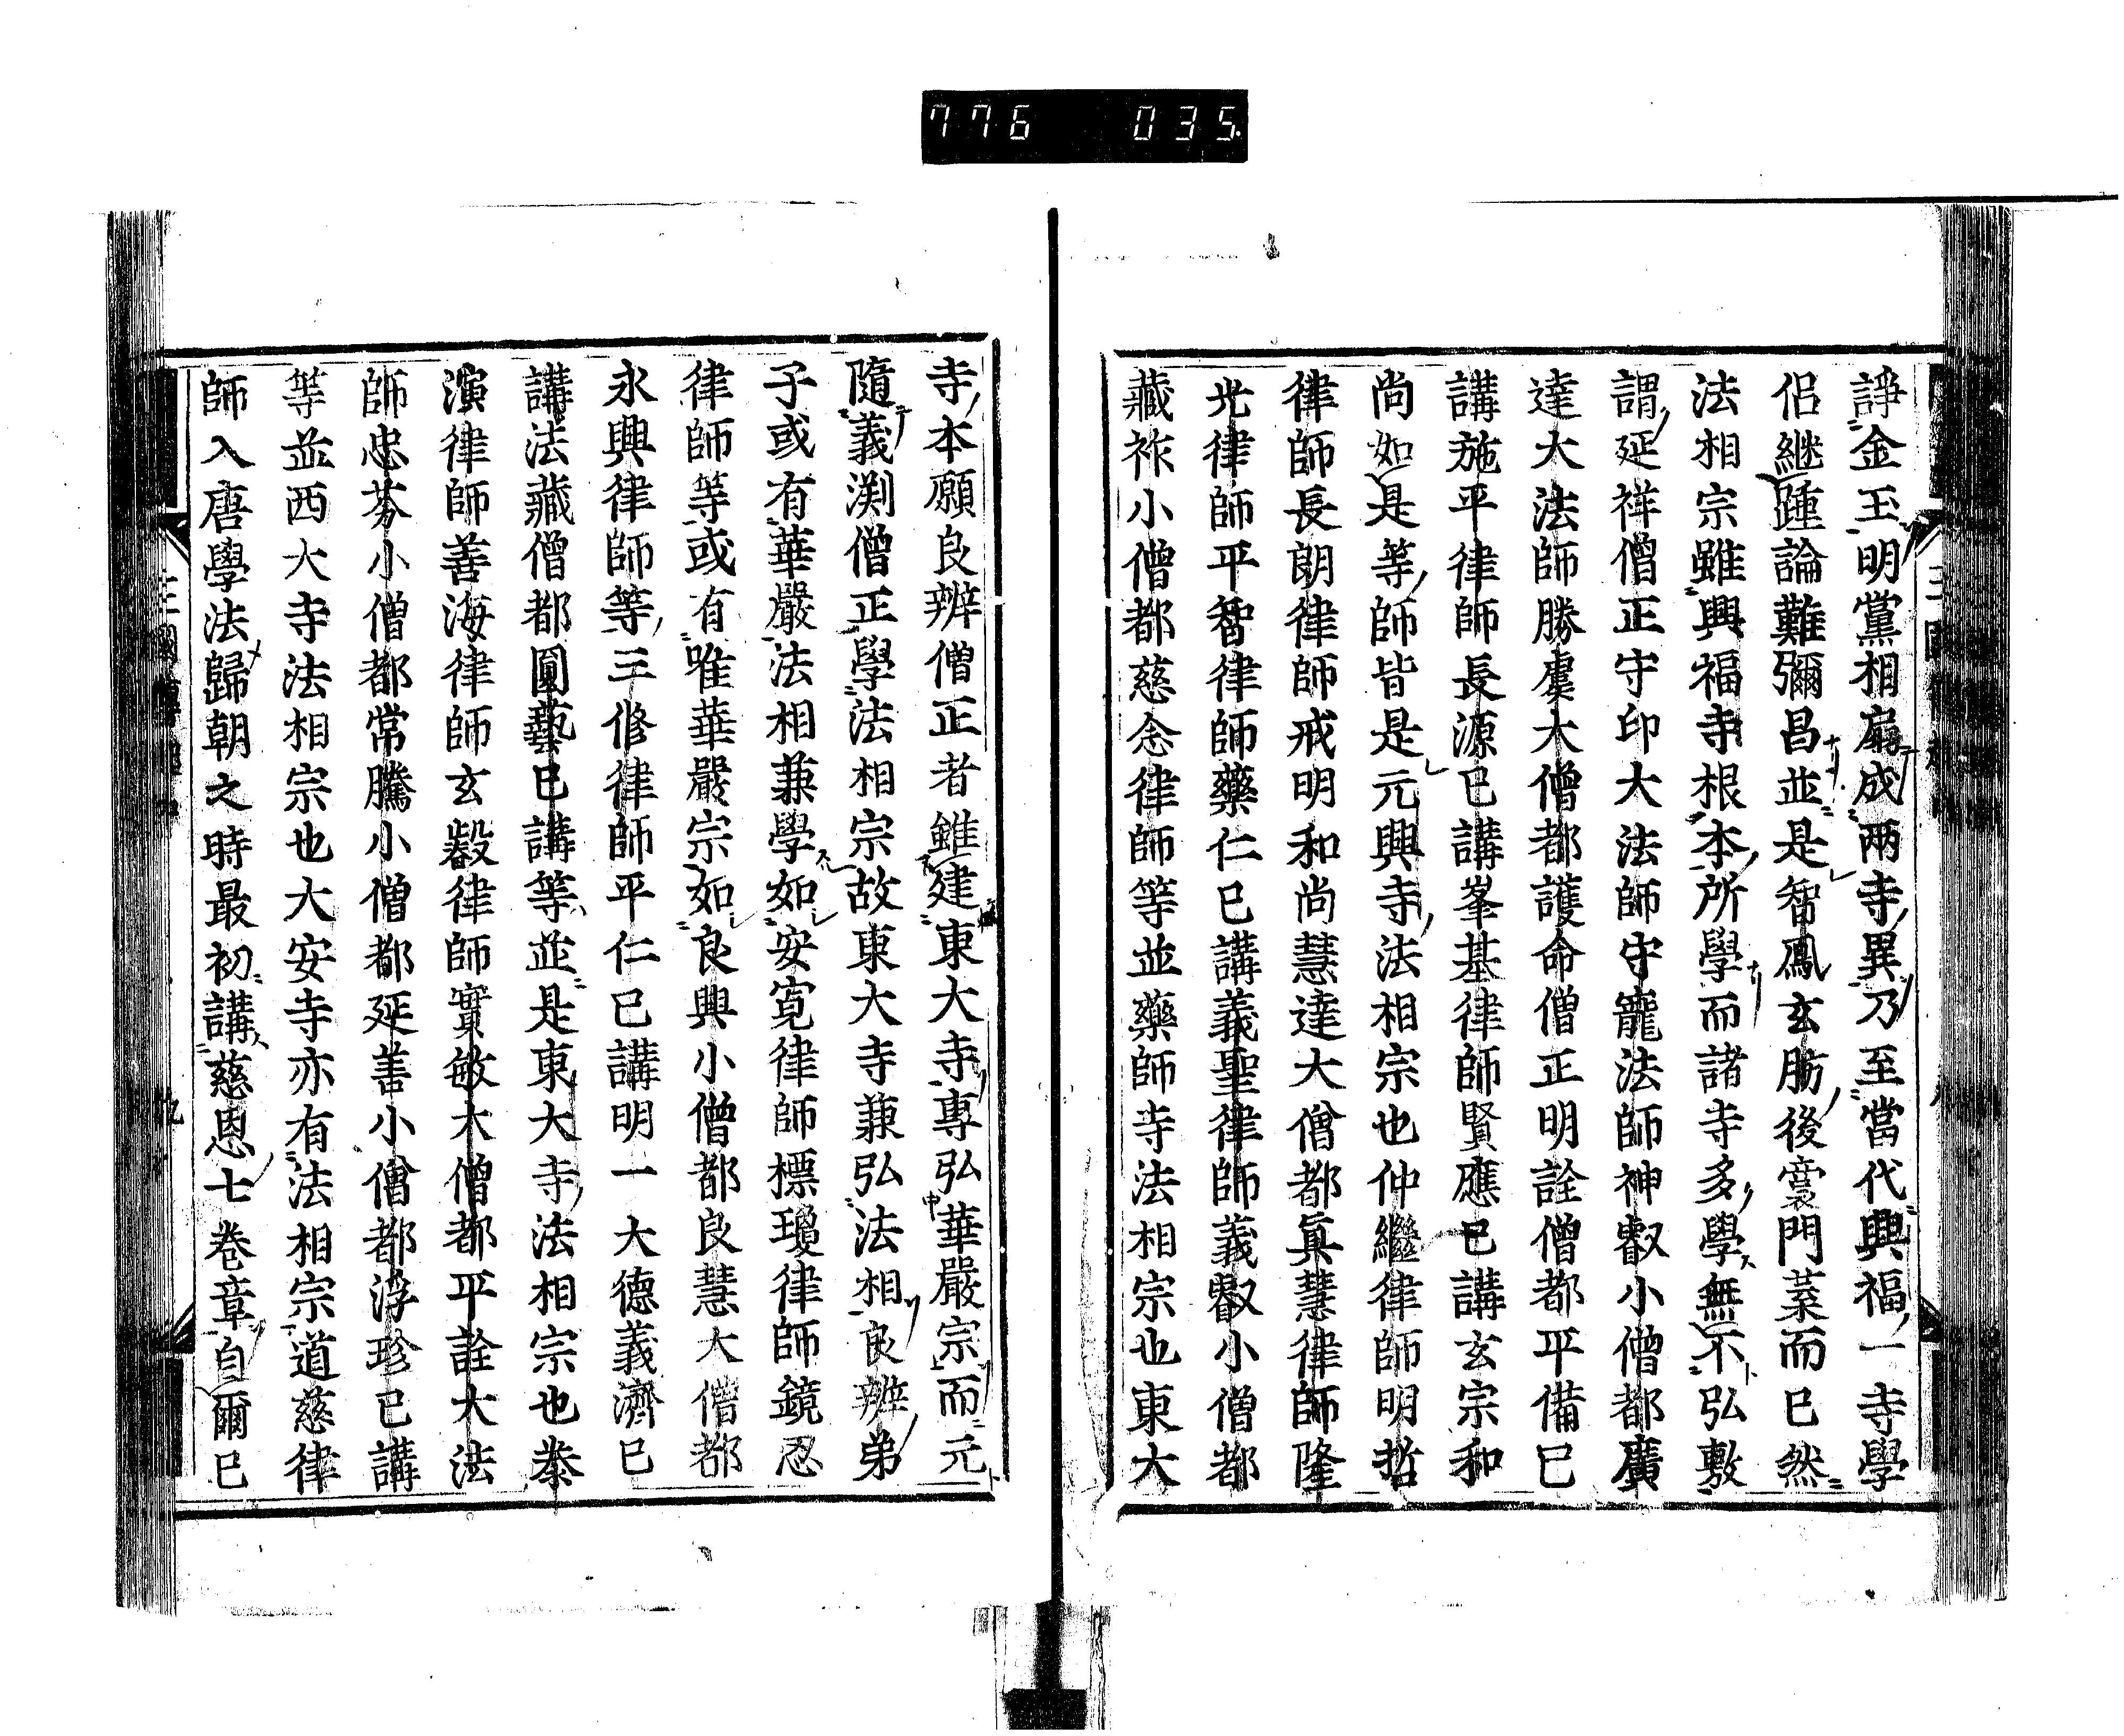 776 035
諍金玉明黨相扇成兩寺異乃至當代興福一寺學
侶継踵論難彌昌並是智鳳玄肪後裔門葉而已然
法相宗雖興福寺根本所學而諸寺多學無不弘敷
謂延祥僧正守印大法師守寵法師神叡小僧都廣
達大法師勝虞大僧都護命僧正明詮僧都平備已
講施平律師長源已講峯基律師賢應已講玄宗和
尚如是等師皆是元興寺法相宗也仲繼律師明哲
律師長朗律師戒明和尚慧達大僧都眞慧律師隆
光律師平智律師藥仁已講義聖律師義叡小僧都
藏祚小僧都慈念律師等並藥師寺法相宗也東大
寺本願良辨僧正者雖建東大寺專弘華嚴宗而元
隨義渕僧正學法相宗故東大寺兼弘法相良辨弟
子或有華嚴法相兼學如安寛律師標瓊律師鏡忍
律師等或有唯華嚴宗如良興小僧都良慧大僧都
永興律師等三修律師平仁已講明一大德義濟已
講法藏僧都圓藝已講等並是東大寺法相宗也泰
演律師善海律師玄叡律師實敏大僧都平詮大法
師忠芬小僧都常騰小僧都延善小僧都浮珍已講
等並西大寺法相宗也大安寺亦有法相宗道慈律
師入唐學法歸朝之時最初講慈恩七卷章自爾已